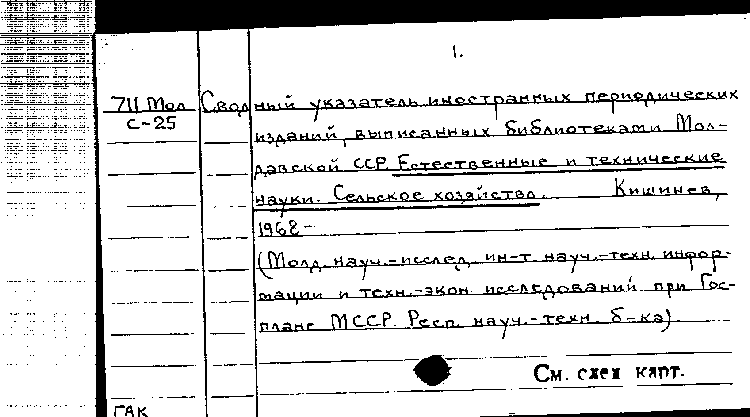 1.
7Ц Мол Сводный указатель иностранных периодических
С-25 изданий, выписанных библиотеками Мол-
давской ССР. Естественные и технические
науки. Сельское хозяйство. Кишинев,
1968-
(Молд. науч.-исслед. ин-т науч.-техн. инфор-
мации и техн.-экон. исследований при Гос-
плане МССР. Респ. науч.-техн. б-ка)
См. след карт.
ГАК